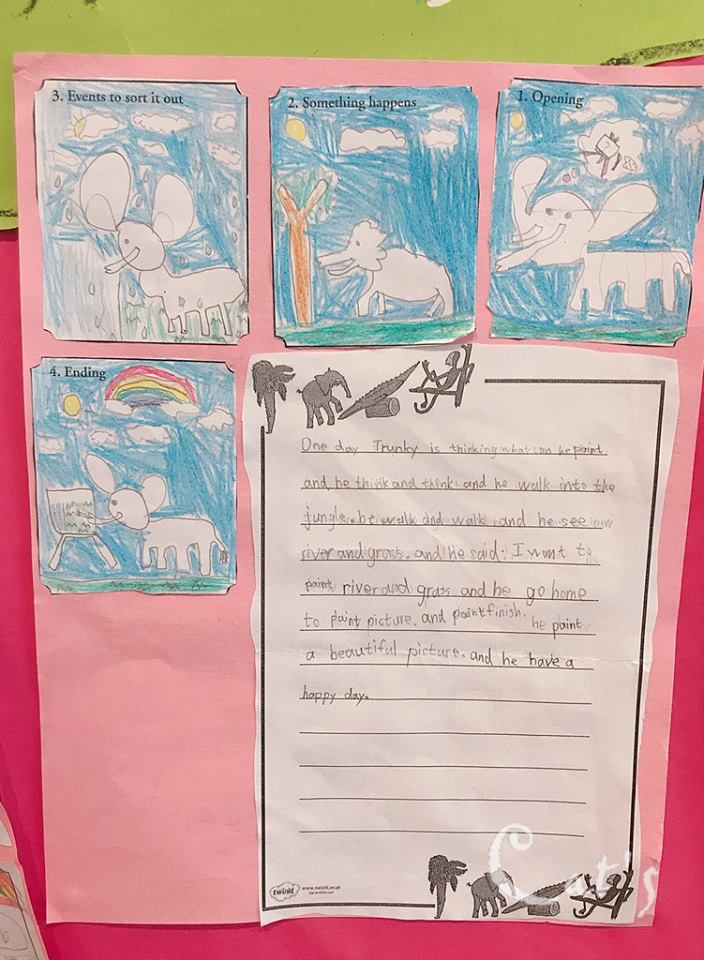 3. Events to sort it out
2. Something happens
1. Opening
4. Ending
One day Trunky is thinking what can he paint.
and he think and think and he walk into the
jungle. he walk and walk and he see
river and grass. and he said: I want to
paint river and grass and he go home
to paint picture. and paint finish. he paint
a beautiful picture. and he have a
happy day.
twinkl
www.twinkl.co.uk
Cat's